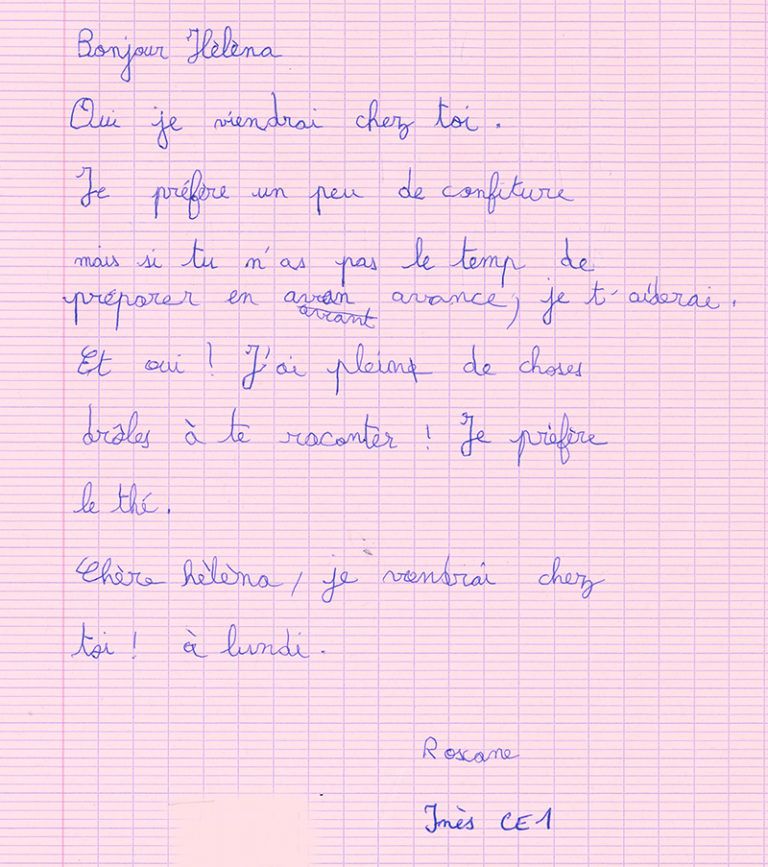 Bonjour Hèlèna
Oui je viendrai chez toi.
Je préfère un peu de confiture
mais si tu n'as pas le temp de
préparer en avan avance, je t'aiderai.
avant
Et oui ! J'ai pleine de choses
drôles à te raconter ! Je prèfère
le thé.
Chère hèlèna, je viendrai chez
toi ! à lundi.
Roxane
Inès CE1